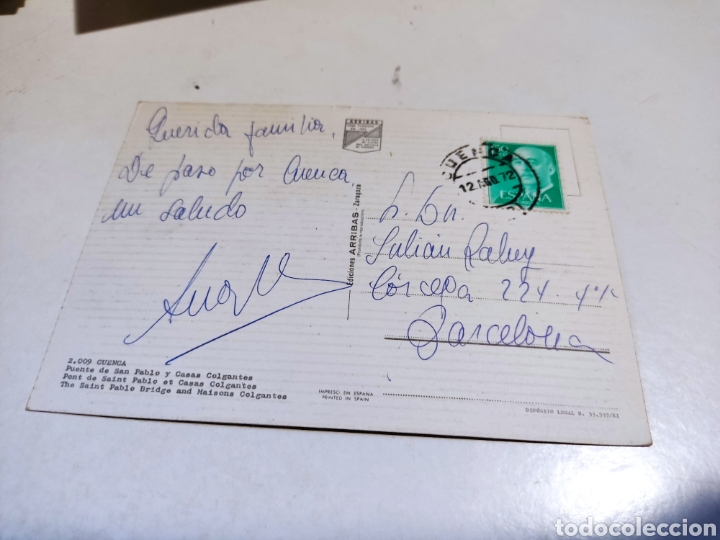 Querida familia,
De paso por Cuenca
un saludo
CUENCA
12 AGO.72
ESPAÑA
S. Dn.
Julian
Córcega 224 - 4º
Barcelona
Ediciones ARRIBAS - Zaragoza
2.009 CUENCA
Puente de San Pablo y Casas Colgantes
Pont de Saint Pablo et Casas Colgantes
The Saint Pablo Bridge and Maisons Colgantes
IMPRESO EN ESPAÑA
PRINTED IN SPAIN
DEPÓSITO LEGAL B.
todocoleccion